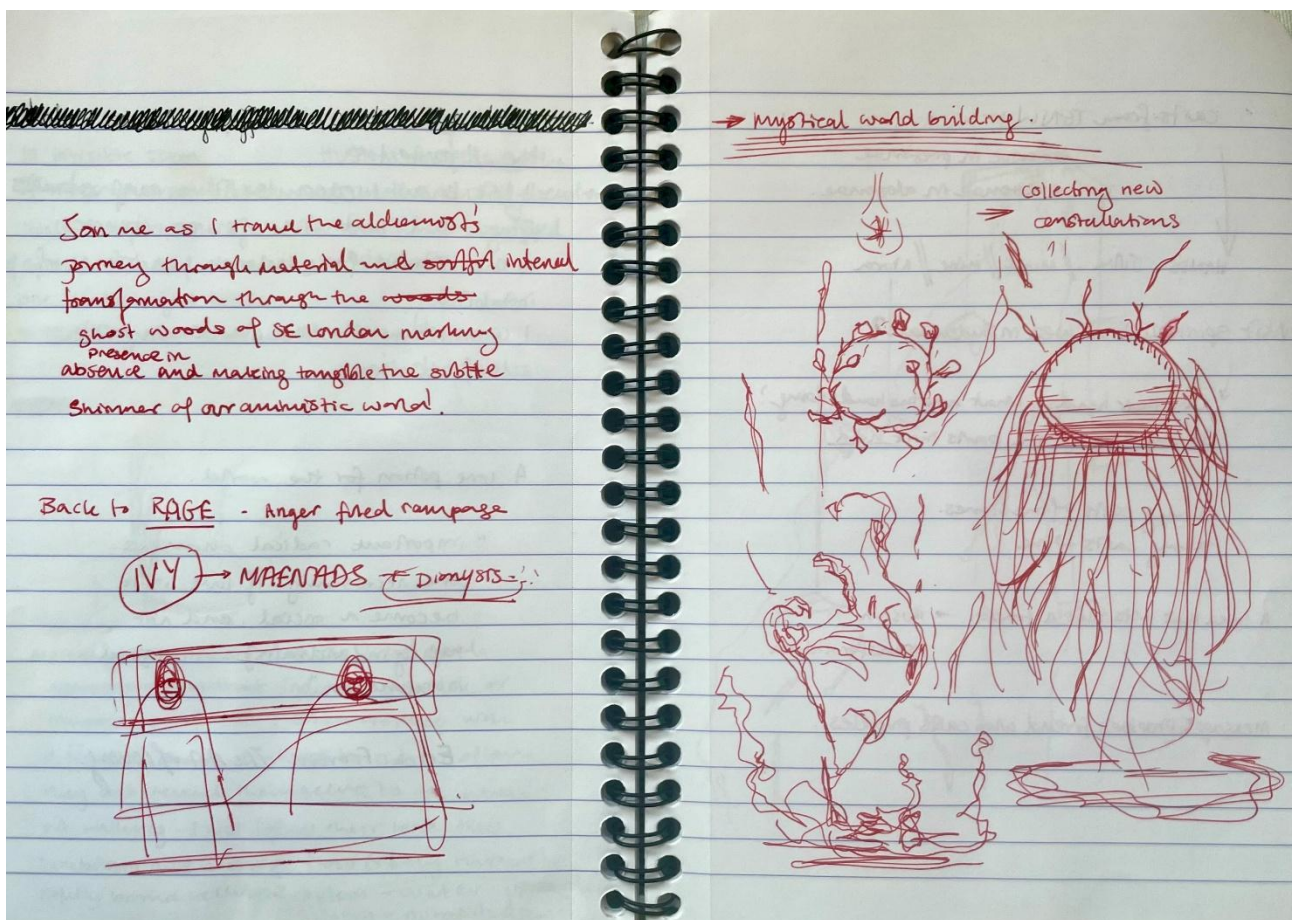 Join me as I travel the alchemists'
journey through material and soulful internal
transformation through the woods
ghost woods of SE London marking
presence in
absence and making tangible the subtle
shimmer of our animistic world.
Back to RAGE - Anger fuled rampage
IVY → MAENADS ← Dionysis
→ Mystical world building.
→ collecting new
constallations